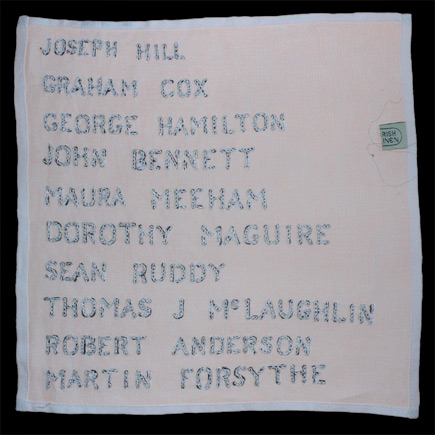 JOSEPH HILL
GRAHAM COX
GEORGE HAMILTON
JOHN BENNETT
MAURA MEEHAM
DOROTHY MAGUIRE
SEAN RUDDY
THOMAS J McLAUGHLIN
ROBERT ANDERSON
MARTIN FORSYTHE